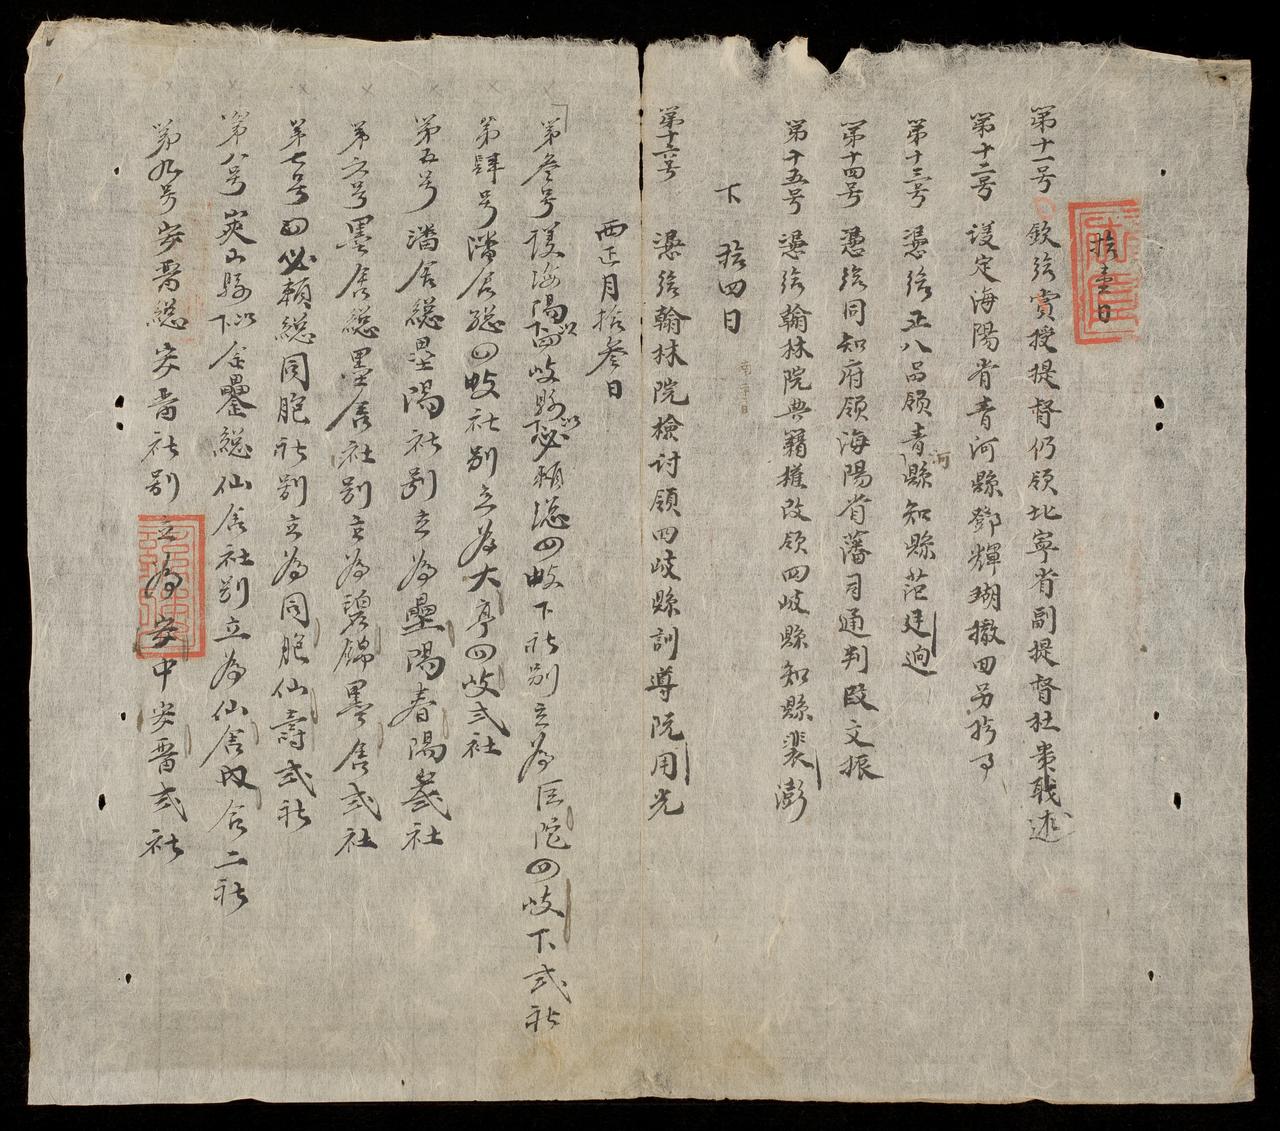 拾壹日
第十一号 欽給賞授提督仍領北寧省副提督杜貴戝述
第十二号 護定海陽省青河縣鄧輝瑚撤回另於
第十三号 憑給正八品領青河縣知縣范廷
第十四号 憑給同知府領海陽省藩司通判段文振
第十五号 憑給翰林院典籍權改領四岐縣知縣裴澎
下 拾四日
第十六号 憑給翰林院檢討領四岐縣訓導阮用光
酉正月拾叁日
第叁号 護海陽以下四岐縣以下必頼總四岐下社別立為巨陀四岐下弍社
第肆号 潘舍總四岐社別立為大亭四岐弍社
第五号 潘舍總壘陽社別立為壘陽春陽弍社
第六号 墨舍總墨舍社別立為碧錦墨舍弍社
第七号 必頼總同胞社別立為同胞仙壽弍社
第八号 夾山縣以下金壘總仙舍社別立為仙舍内含二社
第九号 安晋總安晋社別立為安中安晋弍社